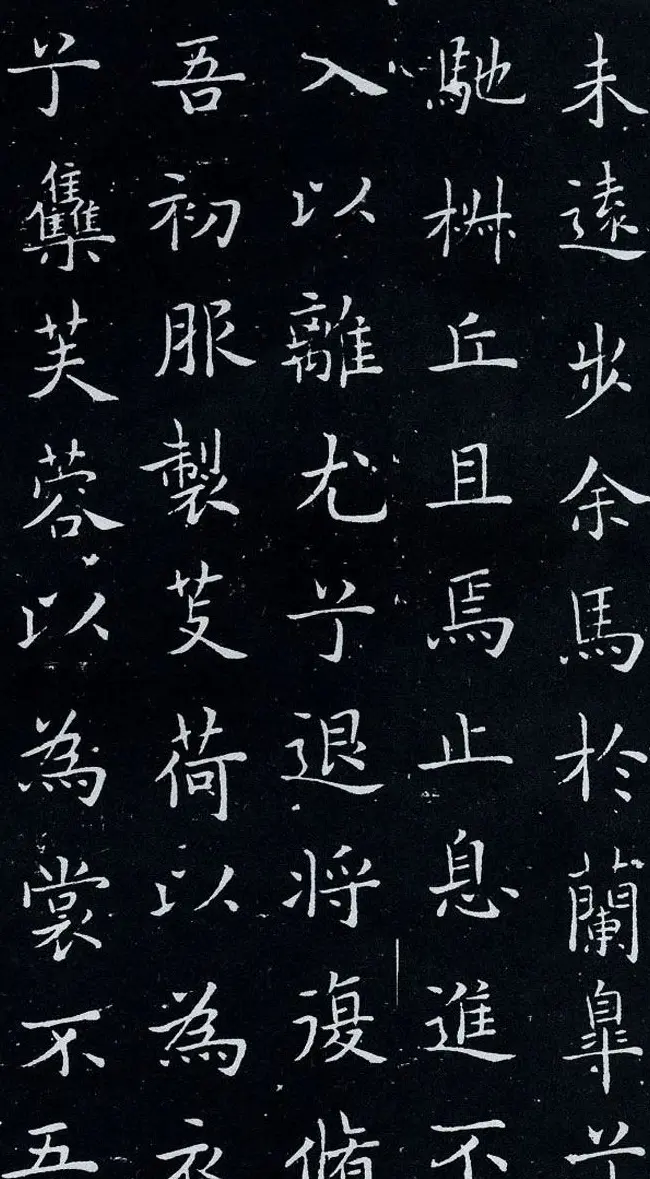 未遠步余馬於蘭皐兮
馳椒丘且焉止息進不
入以離尤兮退將復脩
吾初服製芰荷以為衣
兮雧芙蓉以為裳不吾